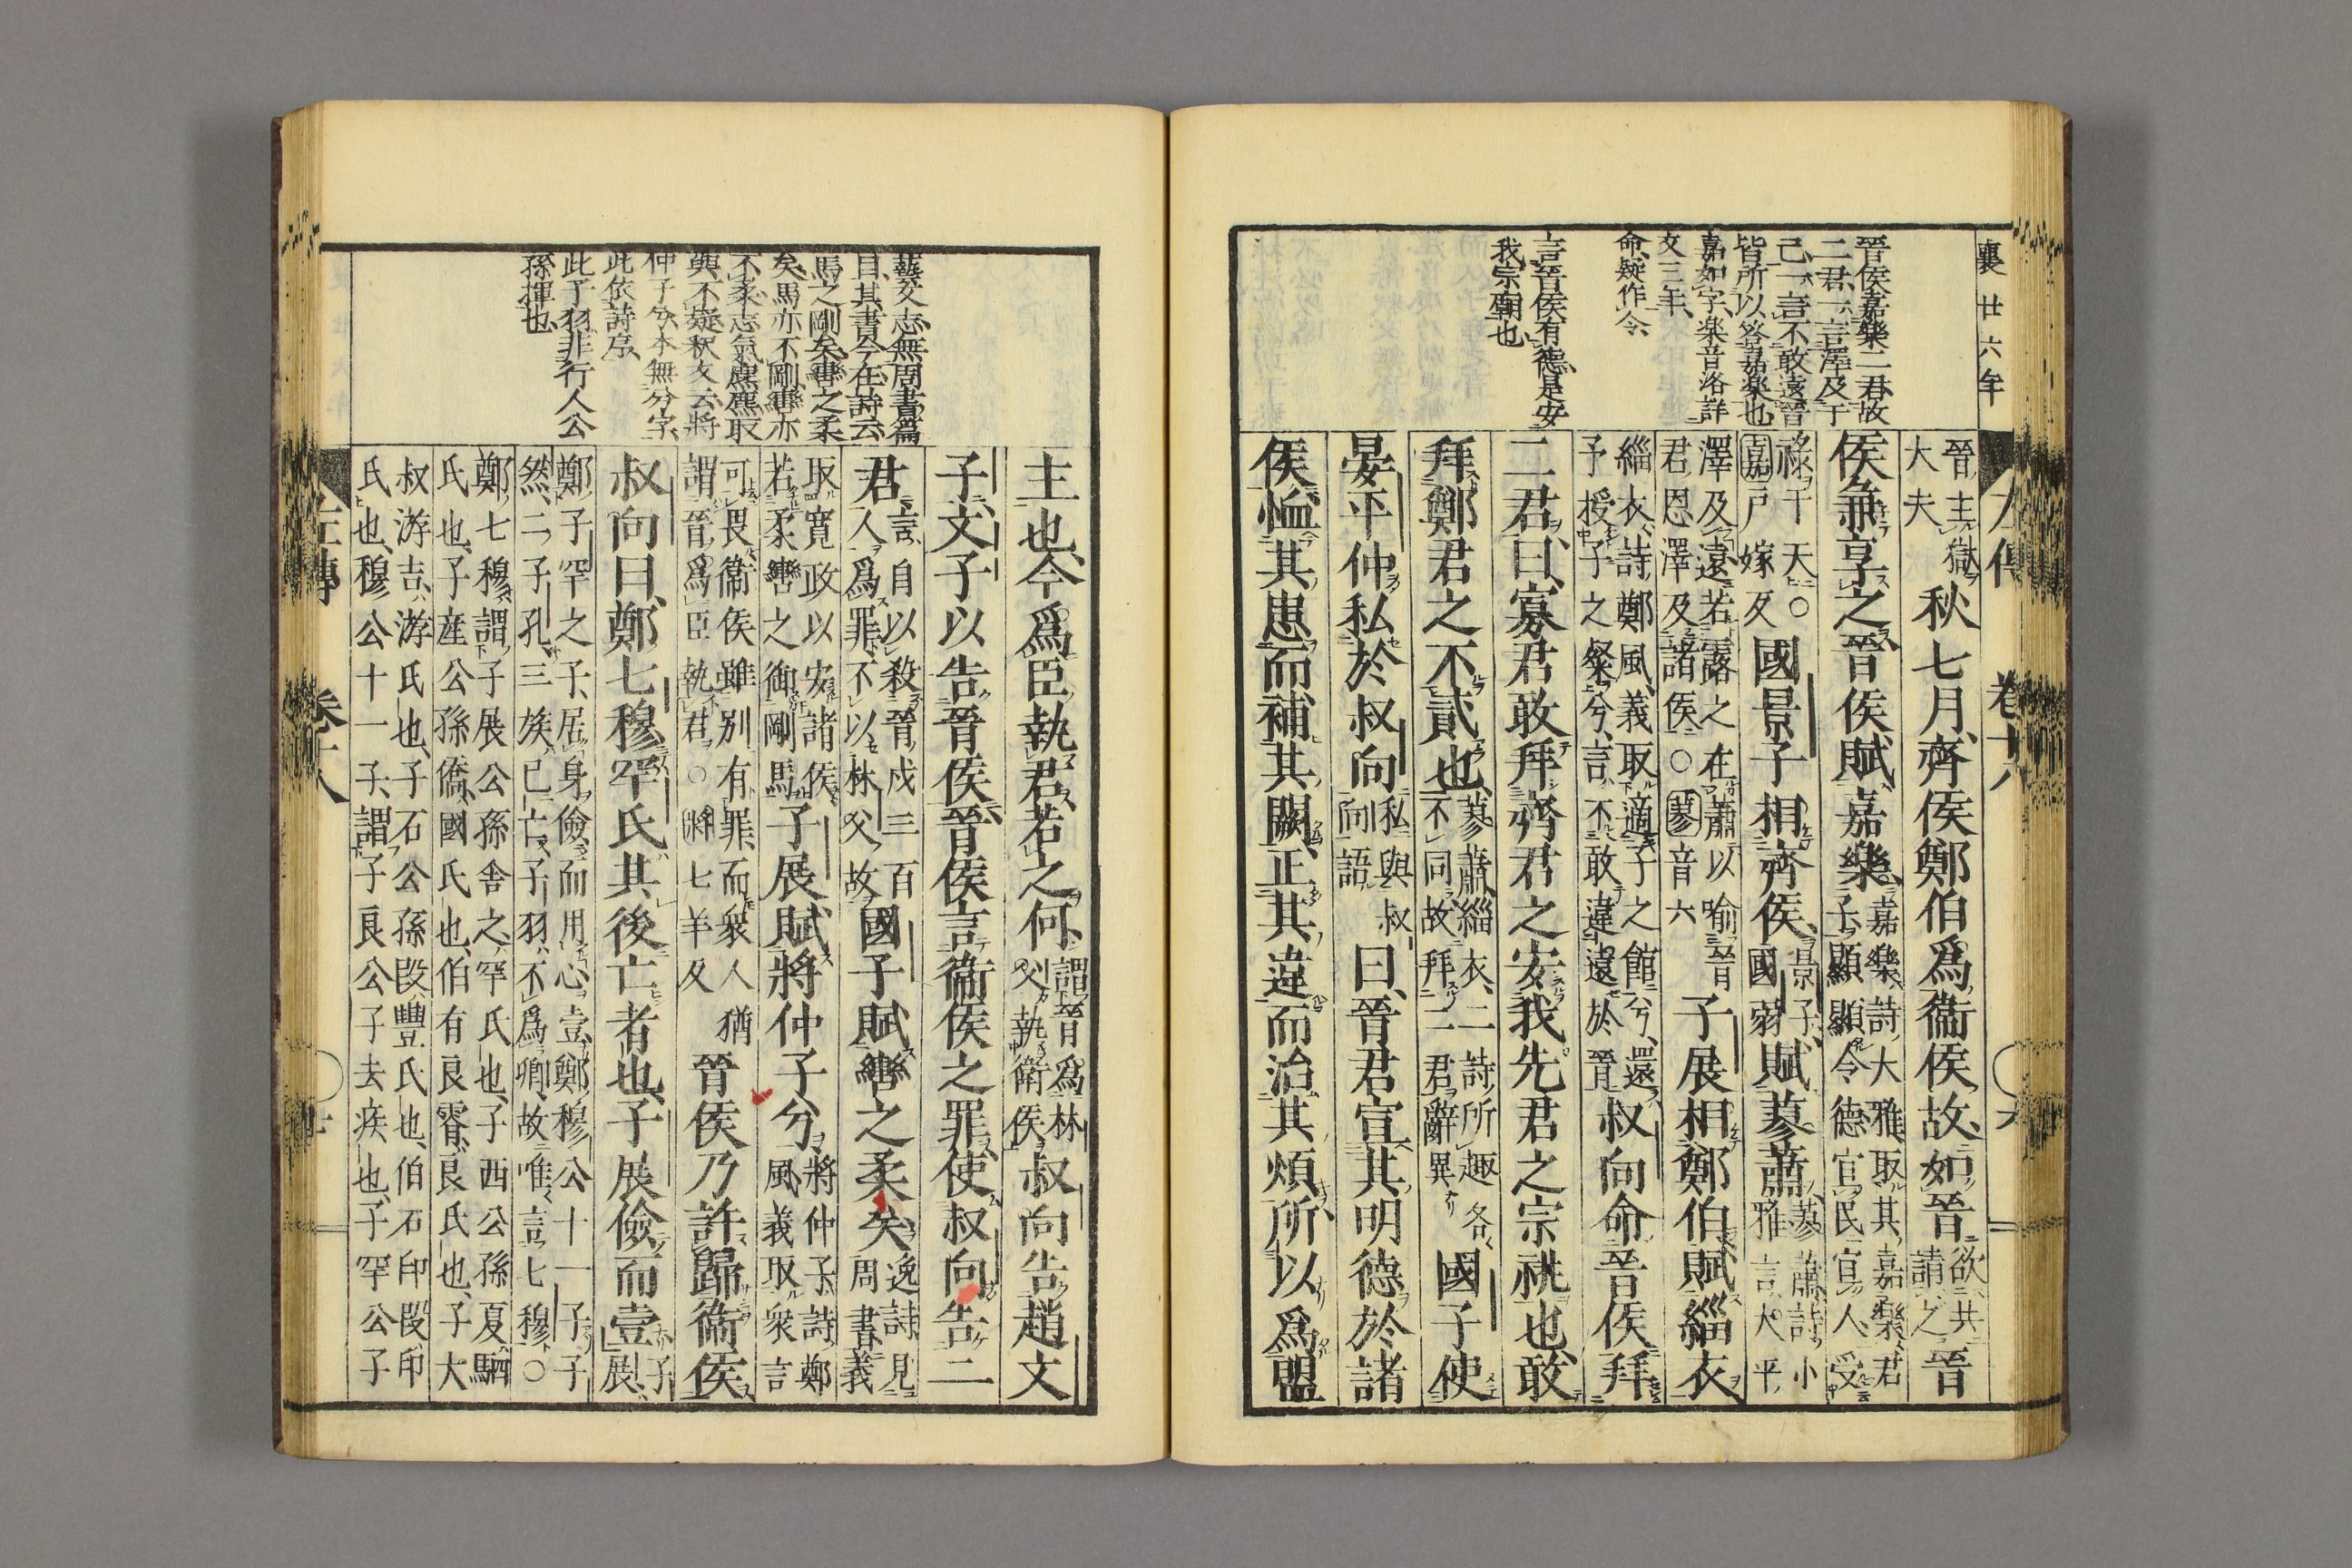 襄廿六年
晉侯嘉樂二君故
二君一言澤及于
己一言不敢遠晉
皆所以答嘉樂也
嘉如字樂音洛詳
文三年
命疑作令
言晉侯有德是安
我宗廟也
左傳 卷十八 六
晉主獄大夫秋七月齊侯鄭伯爲衞侯故如晉欲共請之晉
侯兼享之晉侯賦嘉樂嘉樂詩大雅取其嘉樂君子顯顯令德宜民宜人受
祿于天○嘉戸嫁反國景子相齊侯景子國弱賦蓼蕭蓼蕭詩小雅言大平
澤及遠若露之在蕭以喻晉君恩澤及諸侯○蓼音六子展相鄭伯賦緇衣
緇衣詩鄭風義取適子之館兮還予授子之粲兮言不敢違遠於晉叔向命晉侯拜
二君曰寡君敢拜齊君之安我先君之宗祧也敢
拜鄭君之不貳也蓼蕭緇衣二詩所趣各不同故拜二君辭異國子使
晏平仲私於叔向私與叔向語曰晉君宣其明德於諸
侯恤其患而補其闕正其違而治其煩所以爲盟
藝文志無周書篇
目其書今在詩云
馬之剛矣轡之柔
矣馬亦不剛轡亦
不柔志氣麃麃取
與不疑釈文云將
仲子兮本無兮字
此依詩序
此子羽非行人公
孫揮也
主也今爲臣執君若之何謂晉爲林父執衞侯叔向告趙文
子文子以告晉侯晉侯言衞侯之罪使叔向告二
君言自以殺晉戍三百人爲罪不以林父故國子賦轡之柔矣逸詩見周書義
取寬政以安諸侯若柔轡之御剛馬子展賦將仲子兮將仲子詩鄭風義取衆言
可畏衞侯雖別有罪而衆人猶謂晉爲臣執君○將七羊反晉侯乃許歸衞侯
叔向曰鄭七穆罕氏其後亡者也子展儉而壹子展
鄭子罕之子居身儉而用心壹鄭穆公十一子子然二子孔三族已亡子羽不爲卿故唯言七穆○
鄭七穆謂子展公孫舎之罕氏也子西公孫夏駟氏也子産公孫僑國氏也伯有良霄良氏也子大
叔游吉游氏也子石公孫段豐氏也伯石印段印氏也穆公十一子謂子良公子去疾也子罕公子
左傳 卷十八